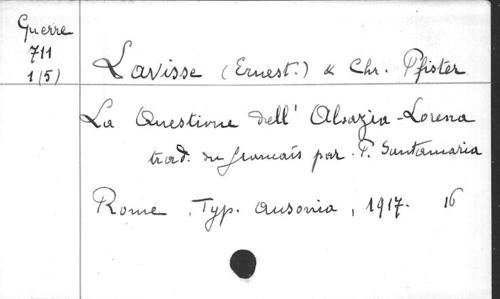 Guerre
711
1(5)
Lavisse (Ernest.) & Chr. Pfister
La Questione dell' Alsazia-Lorena
trad. du francais par P. Santamaria
Rome, Typ. Ausonia, 1917. 16